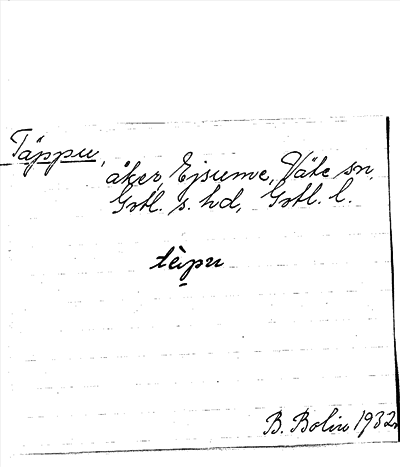 Täppu,
åker, Ejsume, Väte sn.
Gotl. s. hd, Gotl. l.
tèpu
B. Bolin 1932